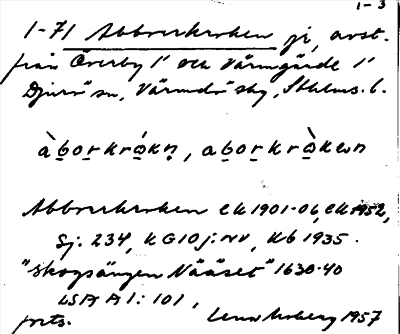 1-3
1-71 Abborrkroken pi, avst.
från Överby 1¹ och Värmgärde 1¹
Djurö sn, Värmdö skg, Sthlms l.
àborkrókn, aborkròken
Abborrkroken EK 1901-06, EK 1952,
Sj: 234, KG10j:NV, Kb 1935.
"Skogsängen Nääset" 1630-40
LSA A1: 101,
forts. 1957